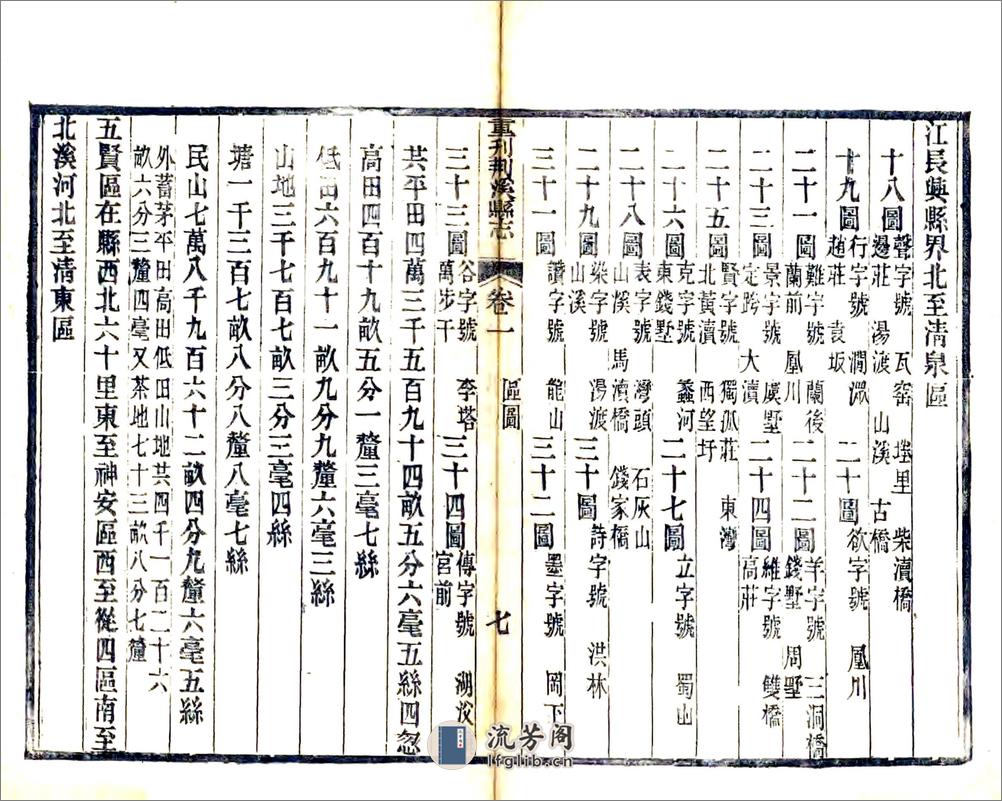 江長興縣界北至清泉區
十八圖 聲字號 瓦窑 堽里 柴瀆橋
邊莊 湯渡 山溪 古橋
十九圖 行字號 澗㵎 二十圖 欲字號 鳳川
趙莊 袁坂
二十一圖 難字號 蘭後 二十二圖 羊字號 三洞橋
蘭前 鳳川 錢墅 周墅
二十三圖 景字號 虞墅 二十四圖 維字號 雙橋
定跨 大瀆 高莊
二十五圖 賢字號 獨孤莊 東灣
北黃瀆 西望圩
二十六圖 克字號 蠡河 二十七圖 立字號 蜀山
東錢墅
二十八圖 表字號 灣頭 石灰山
山溪 馬瀆橋 錢家橋
二十九圖 染字號 湯渡 三十圖 詩字號 洪林
山溪
三十一圖 讚字號 龍山 三十二圖 墨字號 岡下
重刊荆溪縣志 卷一 區圖 七
三十三圖 谷字號 李塔 三十四圖 傳字號 湖㳇
萬步干 宮前
共平田四萬三千五百九十四畝五分六毫五絲四忽
高田四百十九畝五分一釐三毫七絲
低田六百九十一畝九分九釐六毫三絲
山地三千七百七畝三分三毫四絲
塘一千二百七畝八分八釐八毫七絲
民山七萬八千九百六十二畝四分九釐六毫五絲
外蓄茅平田高田低田山地共四千一百二十六
畝六分三釐四毫又茶地七十三畝八分七釐
五賢區在縣西北六十里東至神安區西至從四區南至
北溪河北至清東區
流芳阁
lfglib.cn